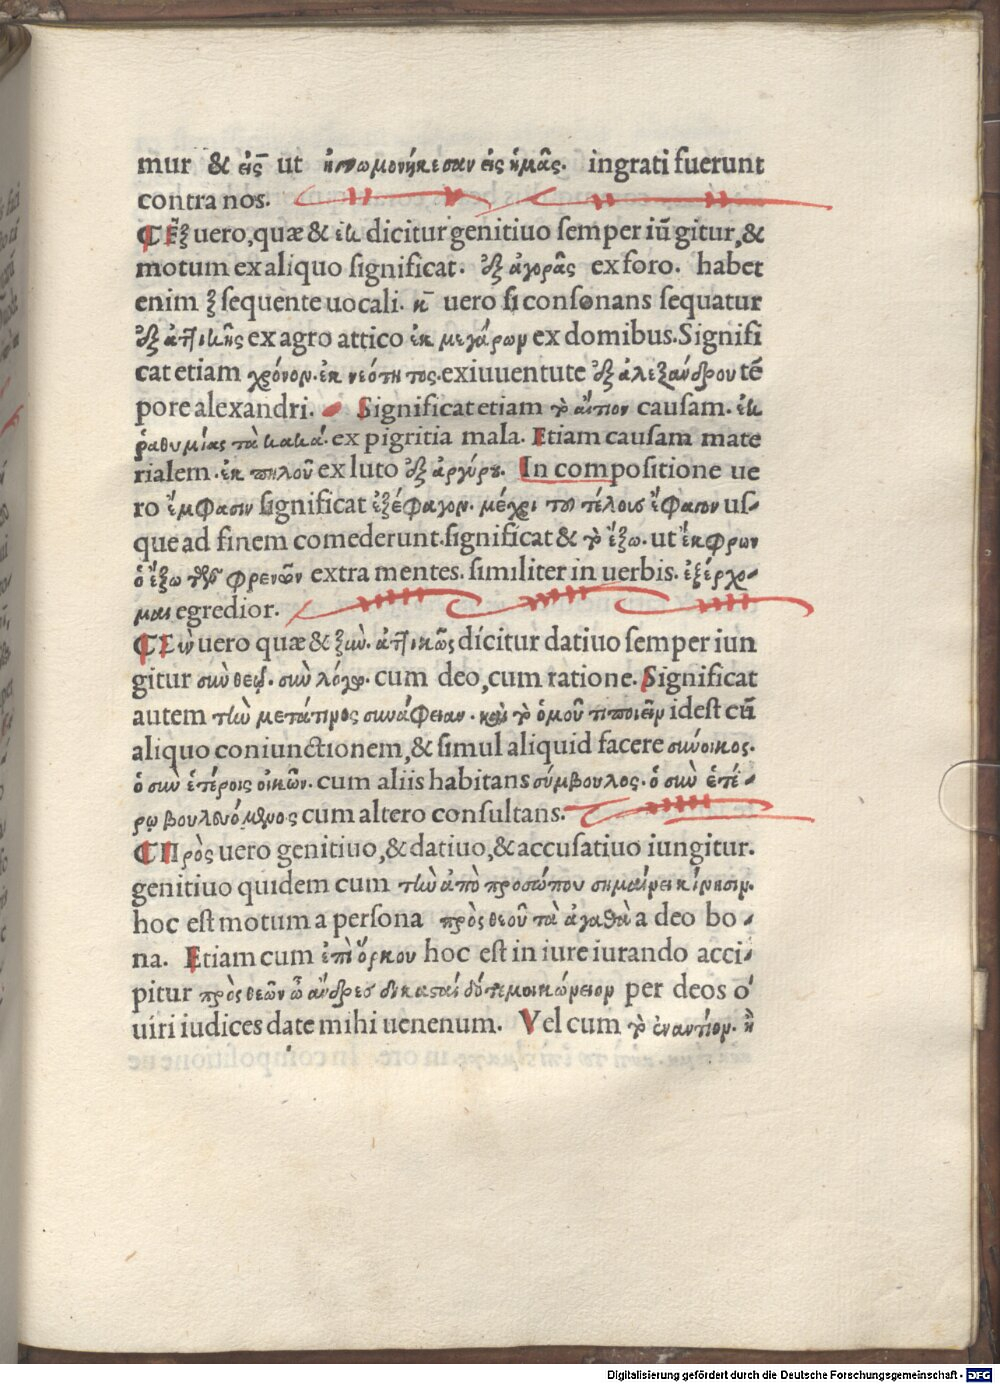 mur & εἰς ut ἠγνωμονήκεσαν εἰς ἡμᾶς. ingrati fuerunt
contra nos.
Ἐξ uero, quæ & ἐκ dicitur genitiuo semper iūgitur, &
motum ex aliquo significat. ἐξ ἀγορᾶς ex foro. habet
enim ξ sequente uocali. κ uero si consonans sequatur
ἐξ ἀττικῆς ex agro attico ἐκ μεγάρων ex domibus. Signifi
cat etiam χρόνον. ἐκ νεότητος. ex iuuentute ἐξ ἀλεξάνδρου tē
pore alexandri. Significat etiam τὸ αἴτιον causam. ἐκ
ῥαθυμίας τὰ κακά. ex pigritia mala. Etiam causam mate
rialem. ἐκ πηλοῦ ex luto ἐξ ἀργύρου. In compositione ue
ro ἔμφασιν significat ἐξέφαγον. μέχρι τοῦ τέλους ἔφαγον us-
que ad finem comederunt. significat & τὸ ἔξω. ut ἔκφρων
ὁ ἔξω τῶν φρενῶν extra mentes. similiter in uerbis. ἐξέρχο-
μαι egredior.
Σὺν uero quæ & ξὺν. ἀττικῶς dicitur datiuo semper iun
gitur σὺν θεῷ. σὺν λόγῳ. cum deo, cum ratione. Significat
autem τὴν μετάπρος συνάφειαν. καὶ τὸ ὁμοῦ τι ποιεῖν idest cū
aliquo coniunctionem, & simul aliquid facere σύνοικος.
ὁ σὺν ἑτέροις οἰκῶν. cum aliis habitans σύμβουλος. ὁ σὺν ἑτέ-
ρῳ βουλευόμενος cum altero consultans.
Πρὸς uero genitiuo, & datiuo, & accusatiuo iungitur.
genitiuo quidem cum τὴν ἀπὸ προσώπου σημαίνει κίνησιν.
hoc est motum a persona πρὸς θεοῦ τὰ ἀγαθὰ a deo bo-
na. Etiam cum ἐπὶ ὅρκου hoc est in iure iurando acci-
pitur πρὸς θεῶν ὦ ἄνδρες δικασταί δότε μοι κώνειον per deos o'
uiri iudices date mihi uenenum. Vel cum τὸ ἐναντίον. ἢ
Digitalisierung gefördert durch die Deutsche Forschungsgemeinschaft - DFG